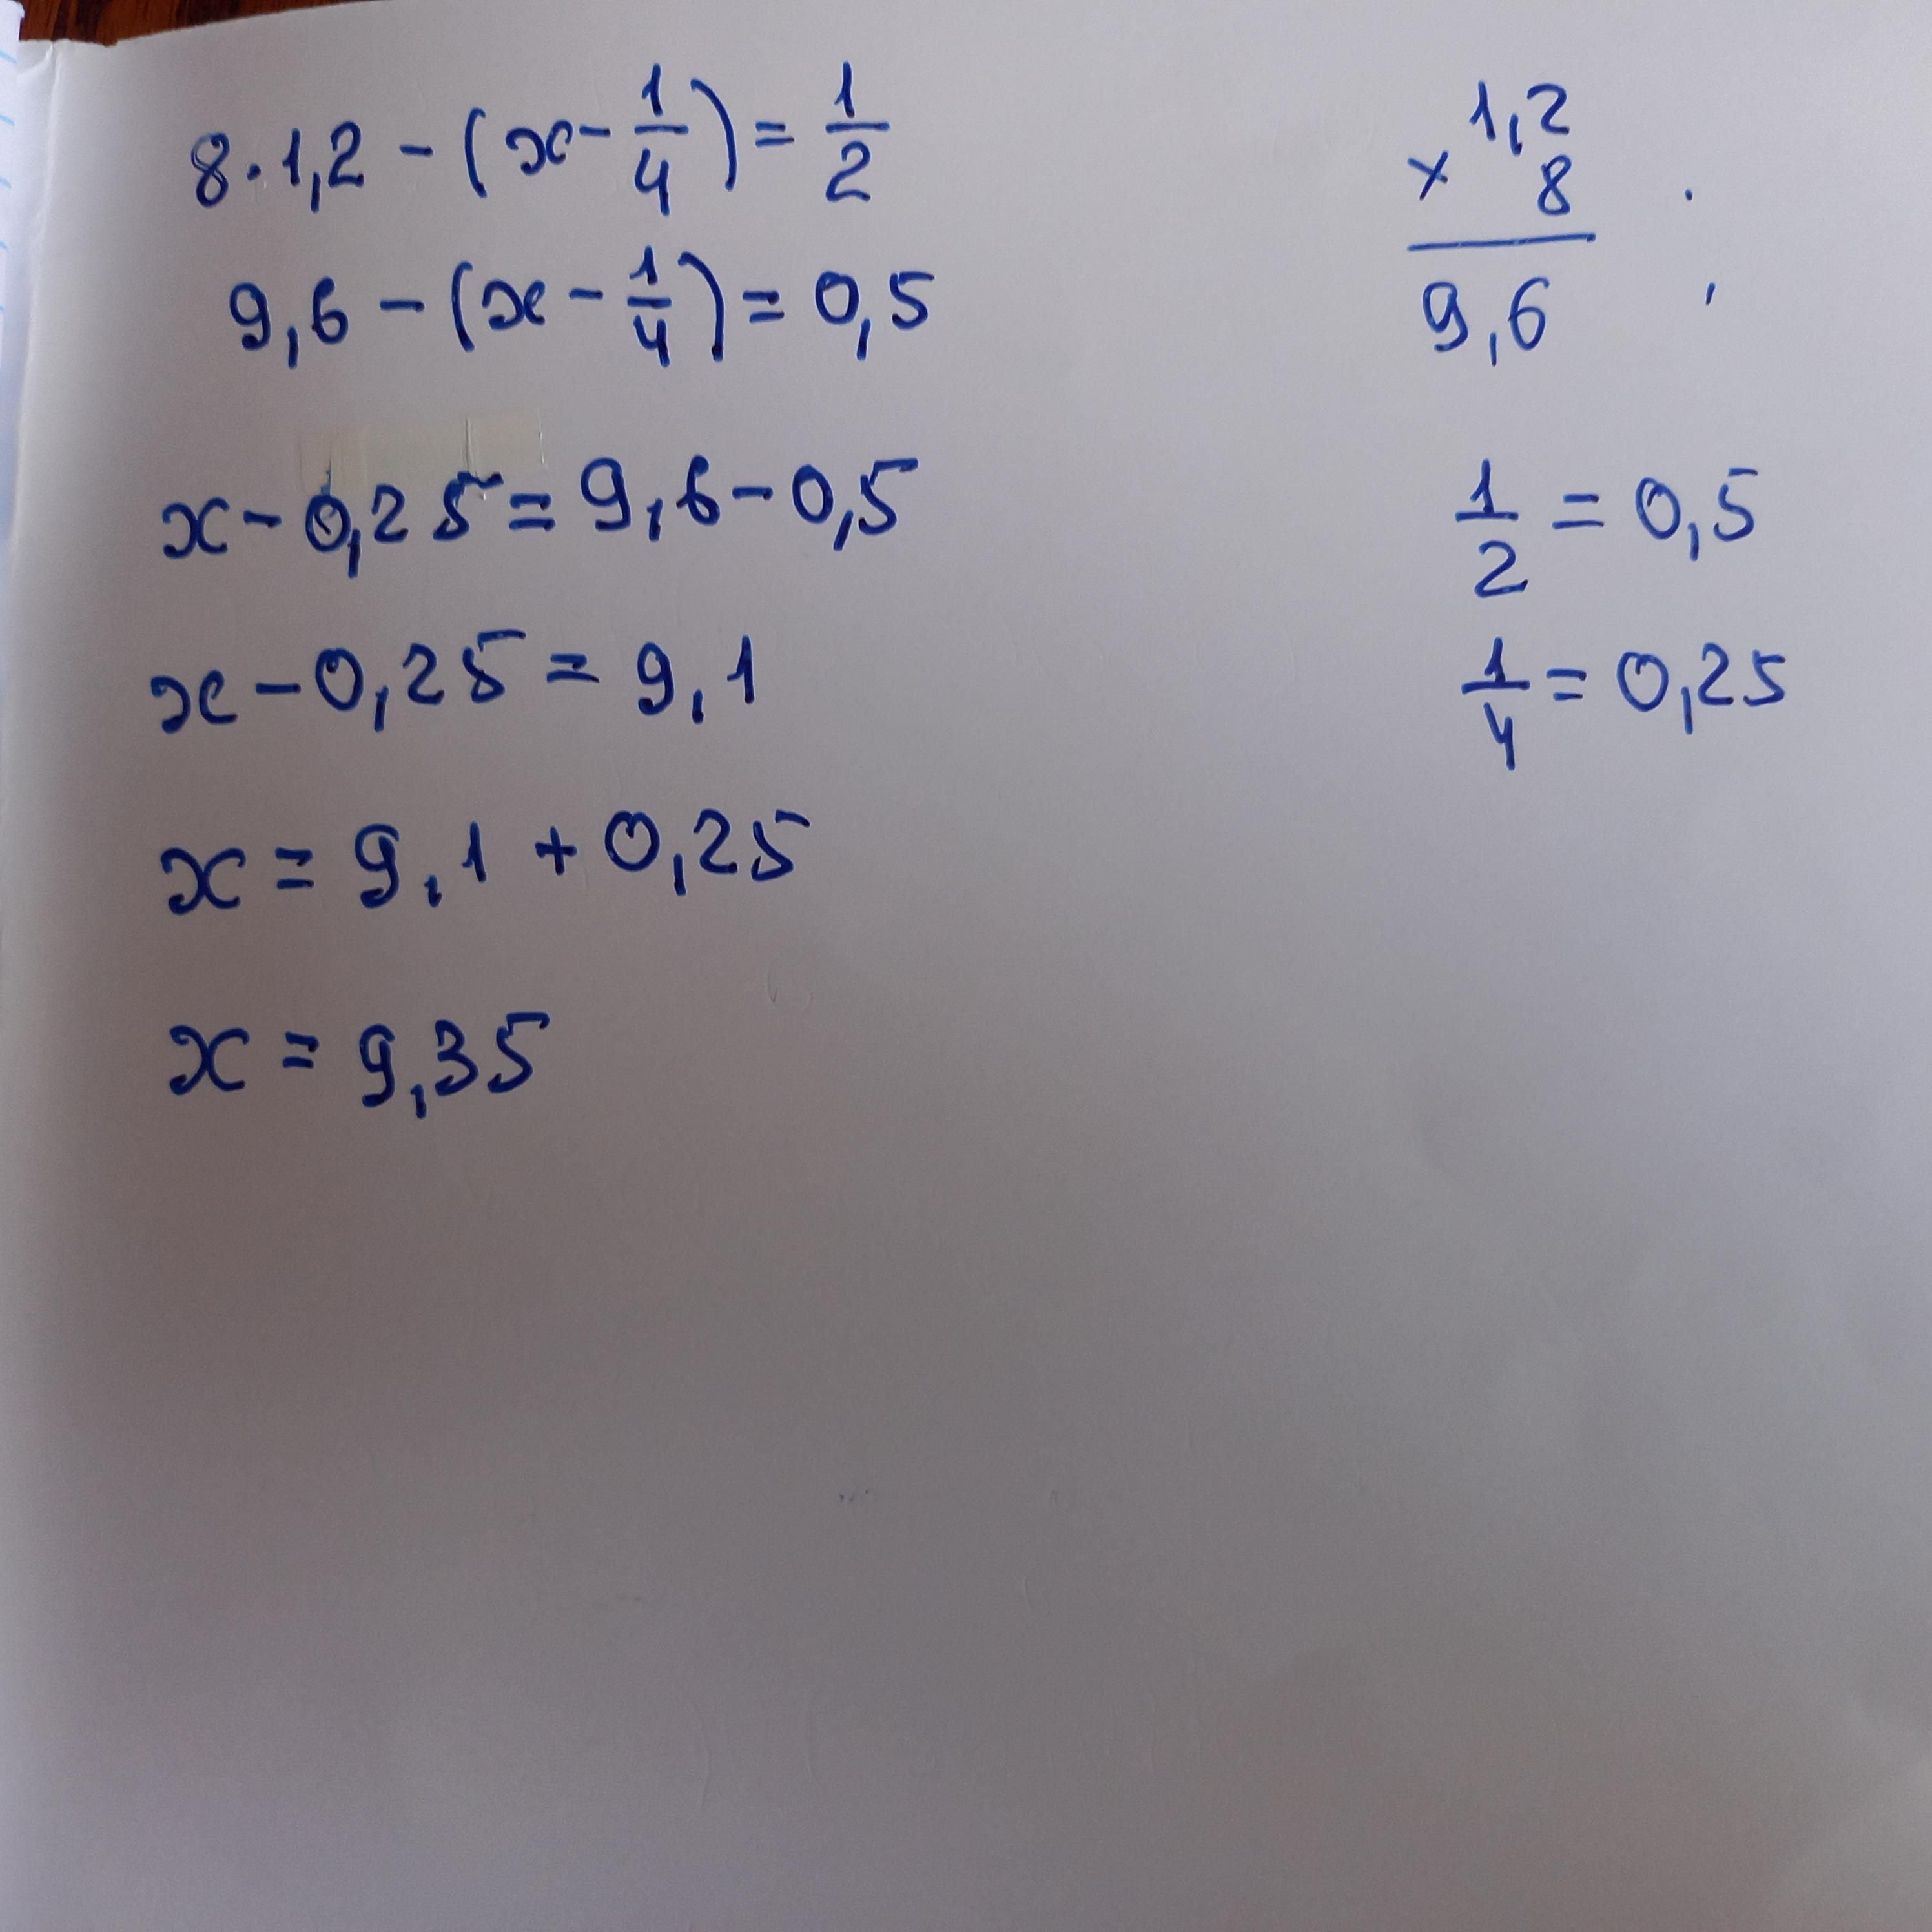 8·1,2 - (x - 1/4) = 1/2
9,6 - (x - 1/4) = 0,5
x - 0,25 = 9,6 - 0,5
x - 0,25 = 9,1
x = 9,1 + 0,25
x = 9,35
1,2
× 8
9,6
1/2 = 0,5
1/4 = 0,25